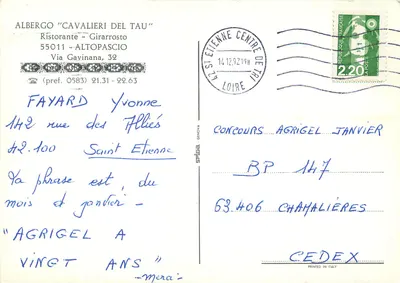 ALBERGO "CAVALIERI DEL TAU"
Ristorante - Girarrosto
55011 - ALTOPASCIO
Via Gavinana, 32
☎ (pref. 0583) 21.31 - 22.63
FAYARD Yvonne
142 rue des Alliés
42.100 Saint Etienne
La phrase est, du
mois de janvier -
"AGRIGEL A
VINGT ANS" -
merci -
42 ST ETIENNE CENTRE DE TRI
LOIRE
2,20
CONCOURS AGRIGEL JANVIER
BP 147
63.406 CHAMALIÈRES
CEDEX
PRINTED IN ITALY